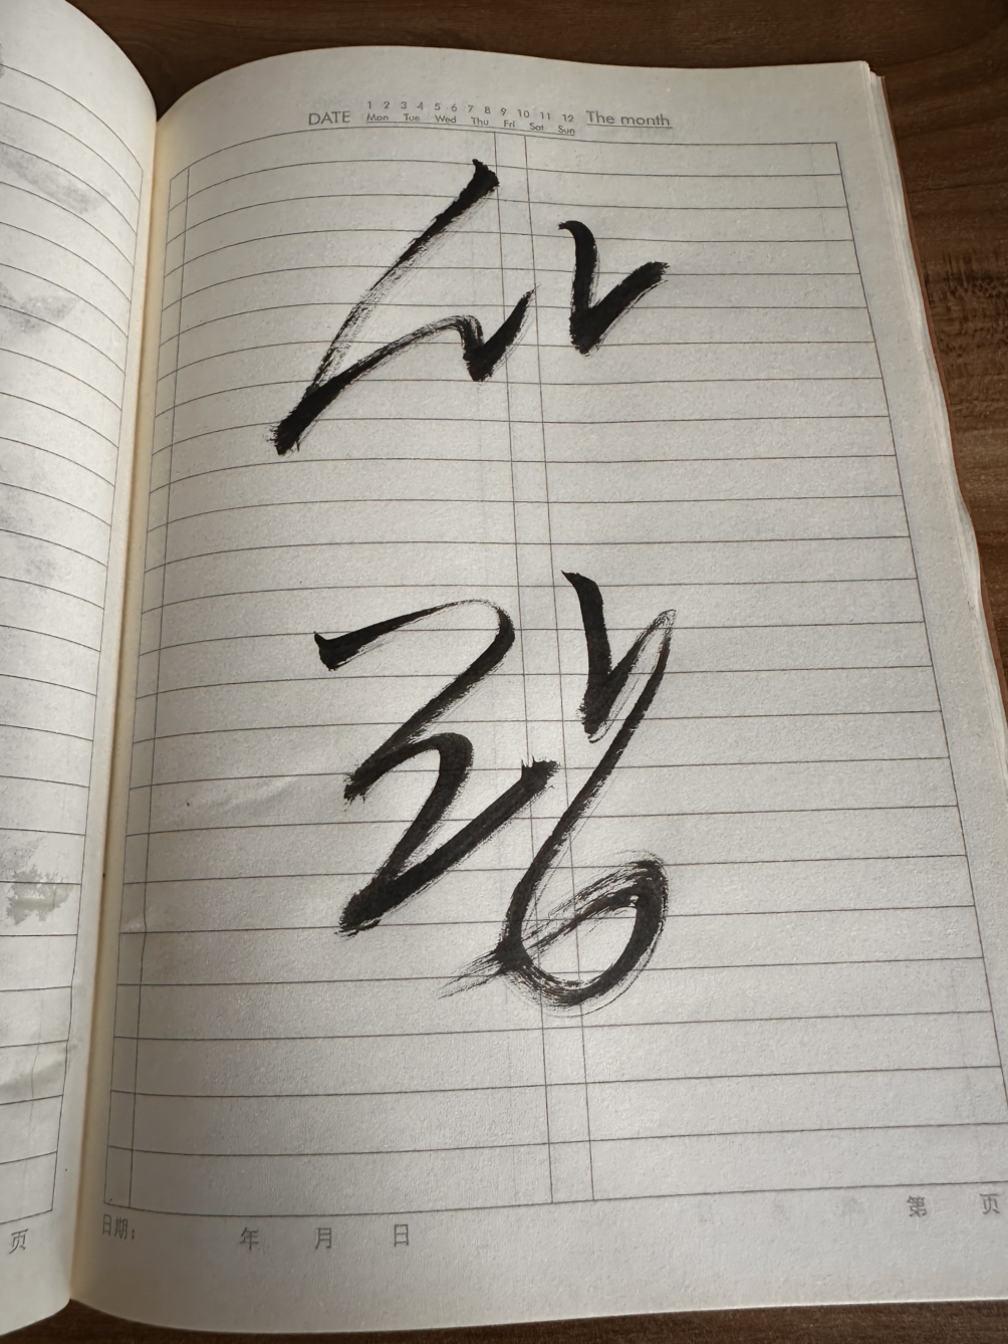 DATE 1 2 3 4 5 6 7 8 9 10 11 12 The month
Mon Tue Wed Thu Fri Sat Sun
사
랑
页
日期: 年 月 日
第 页